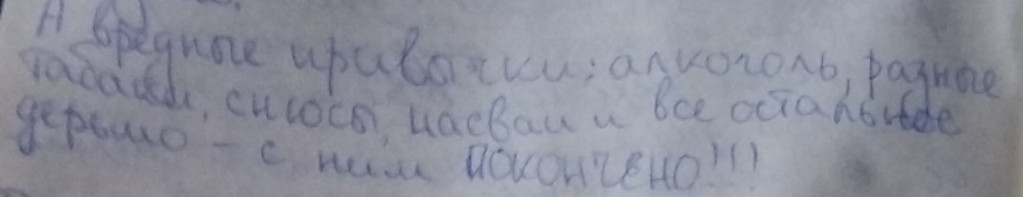 А вредные привычки: алкоголь, разные
табаки, снюсы, насваи и все остальное
дерьмо - с ним ПОКОНЧЕНО!!!